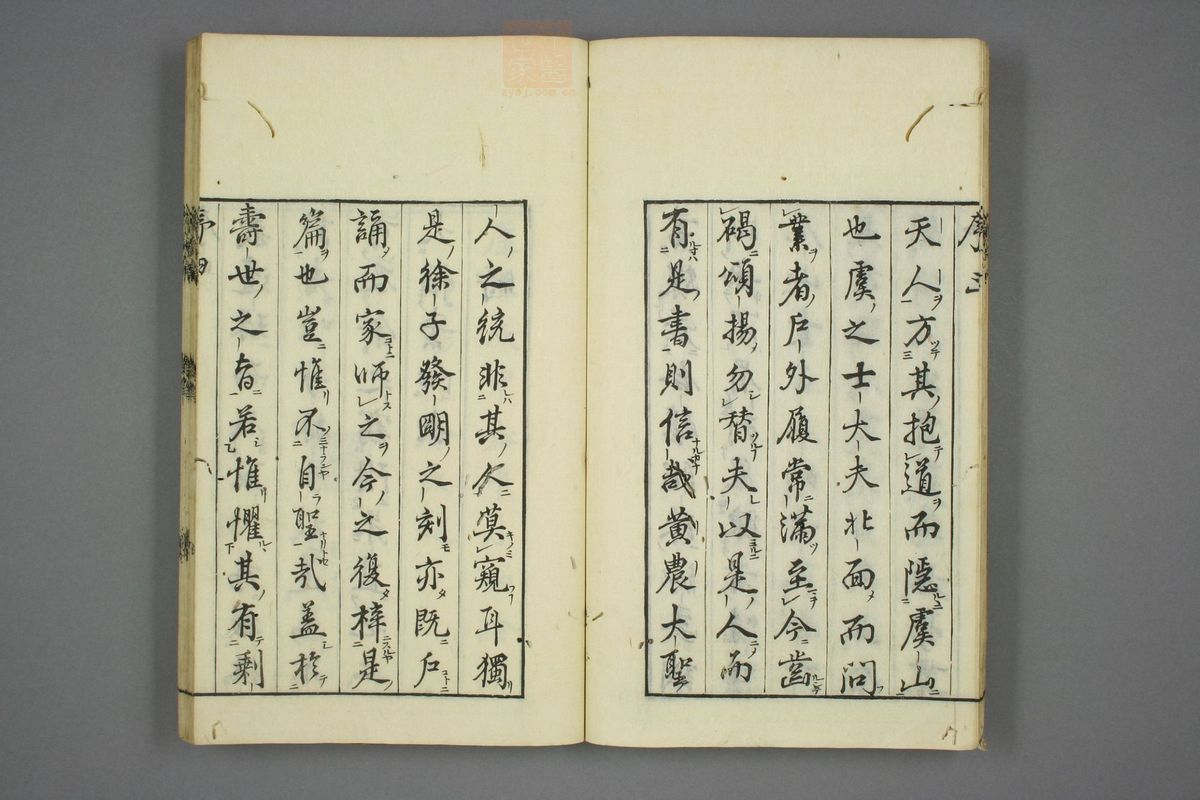 序三
天人方其抱道而隱虞山
也虞之士大夫北面而問
業者戶外履常滿至今齒
褐頌揚勿替夫以是人而
有是書則信哉黃農大聖
人之統非其人莫窺耳獨
是徐子發明之刻亦既戶
誦而家師之今之復梓是
篇也豈惟不自聖哉蓋於
壽世之旨若惟懼其有剩
序四
中醫世家
zysj.com.cn